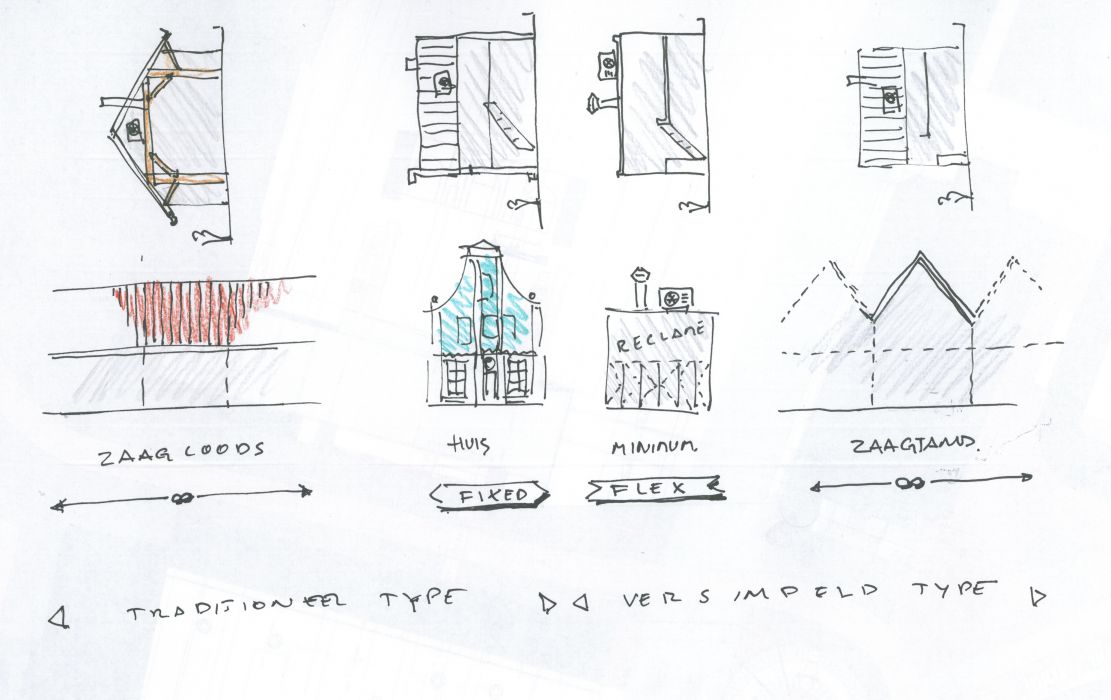 RECLAME
ZAAGLOODS
HUIS
MINIMUM
ZAAGTAND.
∞
FIXED
FLEX
∞
TRADITIONEEL TYPE
VERSIMPELD TYPE